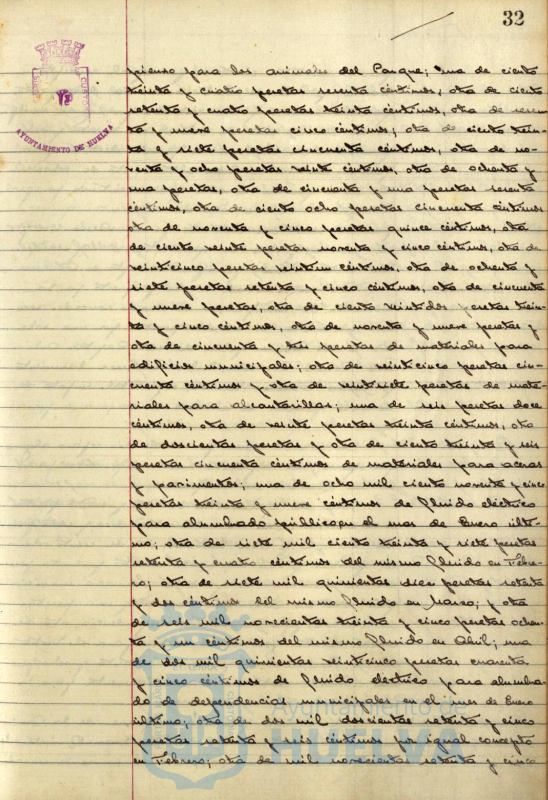 32
AYUNTAMIENTO DE HUELVA
pienso para los animales del Parque; una de ciento
treinta y cuatro pesetas sesenta céntimos, otra de ciento
setenta y cuatro pesetas treinta céntimos, otra de sesen-
ta y nueve pesetas cinco céntimos; otra de ciento trein-
ta y siete pesetas cincuenta céntimos, otra de no-
venta y ocho pesetas veinte céntimos, otra de ochenta y
una pesetas, otra de cincuenta y una pesetas sesenta
céntimos, otra de ciento ocho pesetas cincuenta céntimos
otra de noventa y cinco pesetas quince céntimos, otra
de ciento veinte pesetas noventa y cinco céntimos, otra de
veinticinco pesetas veintiun céntimos, otra de ochenta y
siete pesetas setenta y cinco céntimos, otra de cincuenta
y nueve pesetas, otra de ciento veintidos pesetas trein-
ta y cinco céntimos, otra de noventa y nueve pesetas y
otra de cincuenta y tres pesetas de materiales para
edificios municipales; otra de veinticinco pesetas cin-
cuenta céntimos y otra de veintisiete pesetas de mate-
riales para alcantarillas; una de seis pesetas doce
céntimos, otra de veinte pesetas treinta céntimos, otra
de doscientas pesetas y otra de ciento treinta y seis
pesetas cincuenta céntimos de materiales para aceras
y pavimentos; una de ocho mil ciento noventa y cinco
pesetas treinta y nueve céntimos de fluido eléctrico
para alumbrado público en el mes de Enero últi-
mo; otra de siete mil ciento treinta y siete pesetas
setenta y cuatro céntimos del mismo fluido en Febre-
ro; otra de siete mil quinientas diez pesetas setenta
y dos céntimos del mismo fluido en Marzo; y otra
de seis mil novecientas treinta y cinco pesetas ochen-
ta y un céntimos del mismo fluido en Abril; una
de dos mil quinientas veinticinco pesetas cuarenta
y cinco céntimos de fluido eléctrico para alumbra-
do de dependencias municipales en el mes de Enero
último; otra de dos mil doscientas setenta y cinco
pesetas setenta y seis céntimos por igual concepto
en Febrero; otra de mil novecientas setenta y cinco
Ayuntamiento de
HUELVA